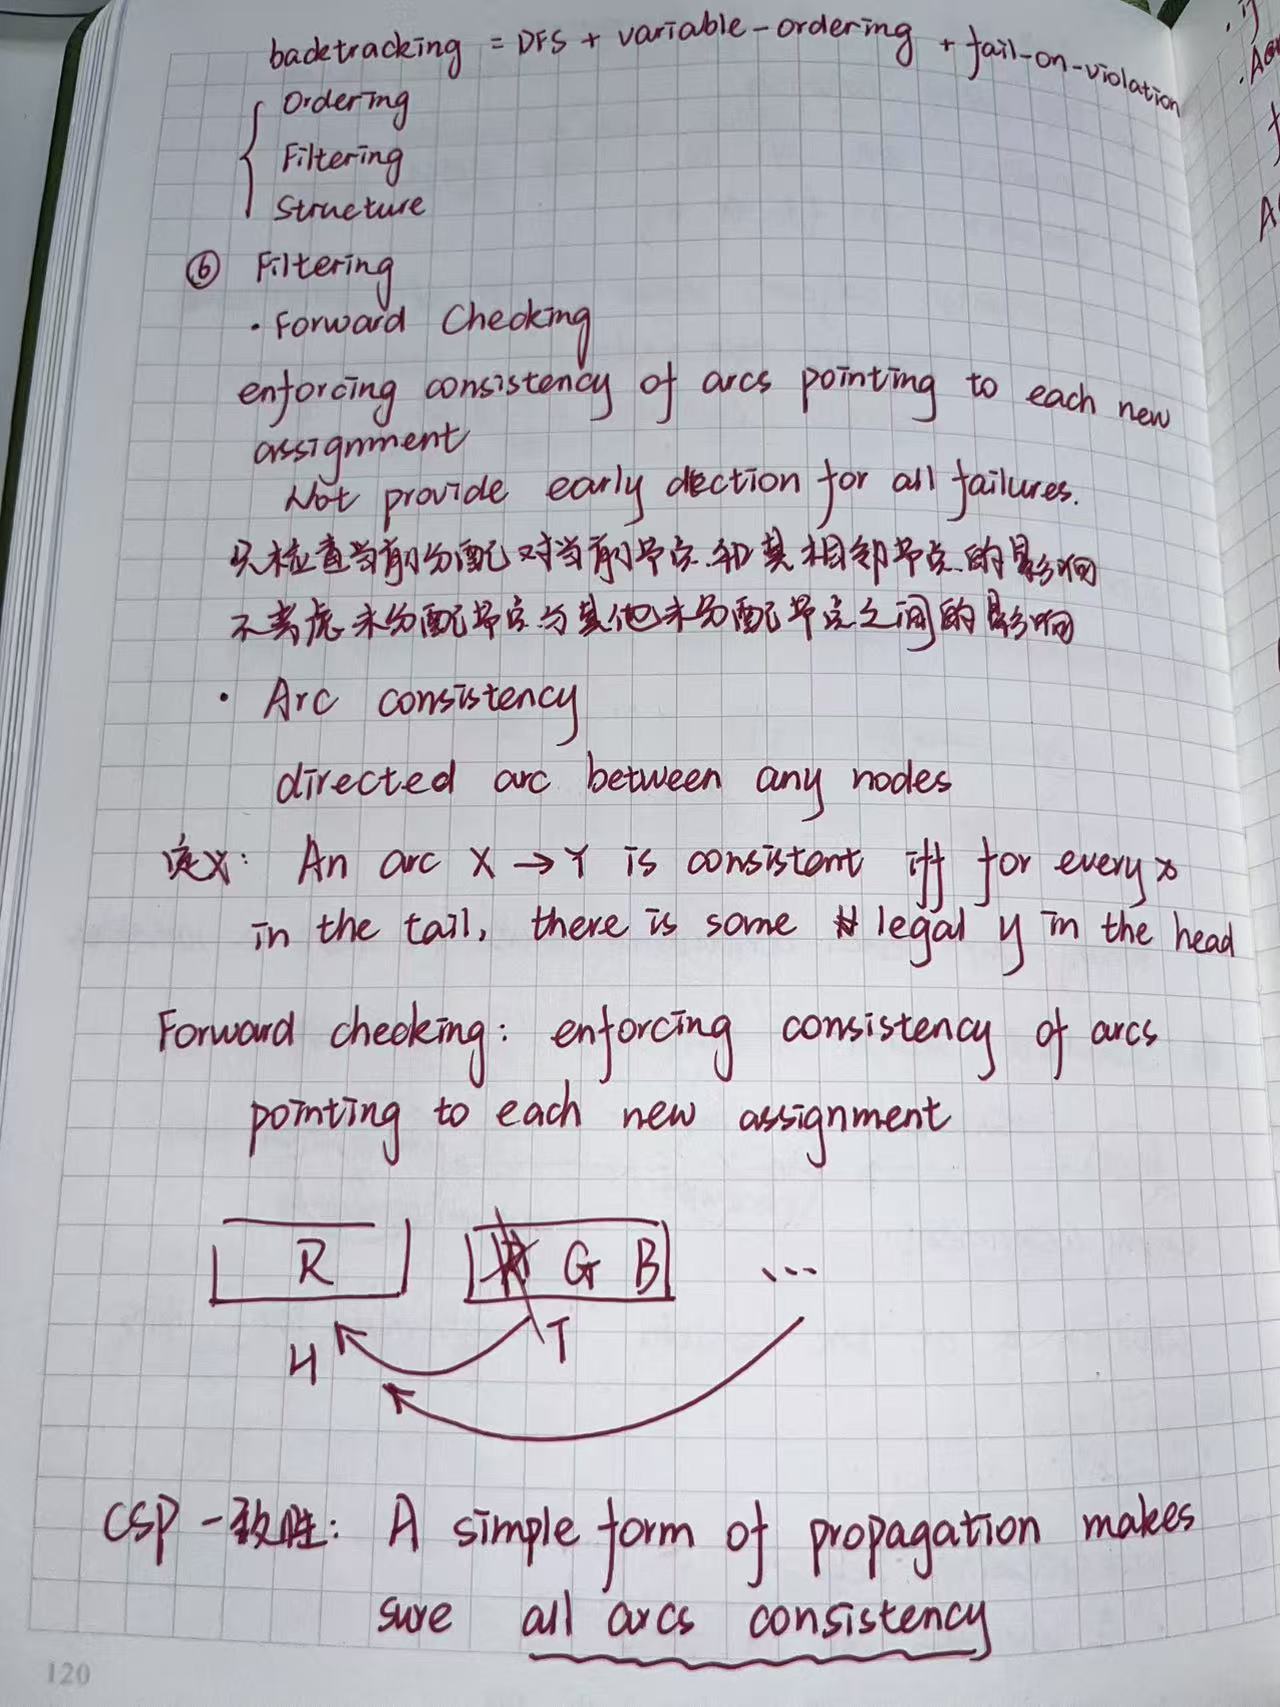 backtracking = DFS + variable-ordering + fail-on-violation
Ordering
Filtering
Structure
⑥ Filtering
· Forward Checking
enforcing consistency of arcs pointing to each new
assignment
Not provide early dection for all failures.
只检查当前分配对当前节点和其相邻节点的影响
不考虑未分配节点与其他未分配节点之间的影响
· Arc consistency
directed arc between any nodes
定义: An arc X → Y is consistent iff for every x
in the tail, there is some legal y in the head
Forward checking: enforcing consistency of arcs
pointing to each new assignment
R R G B ...
H T
CSP一致性: A simple form of propagation makes
sure all arcs consistency
120